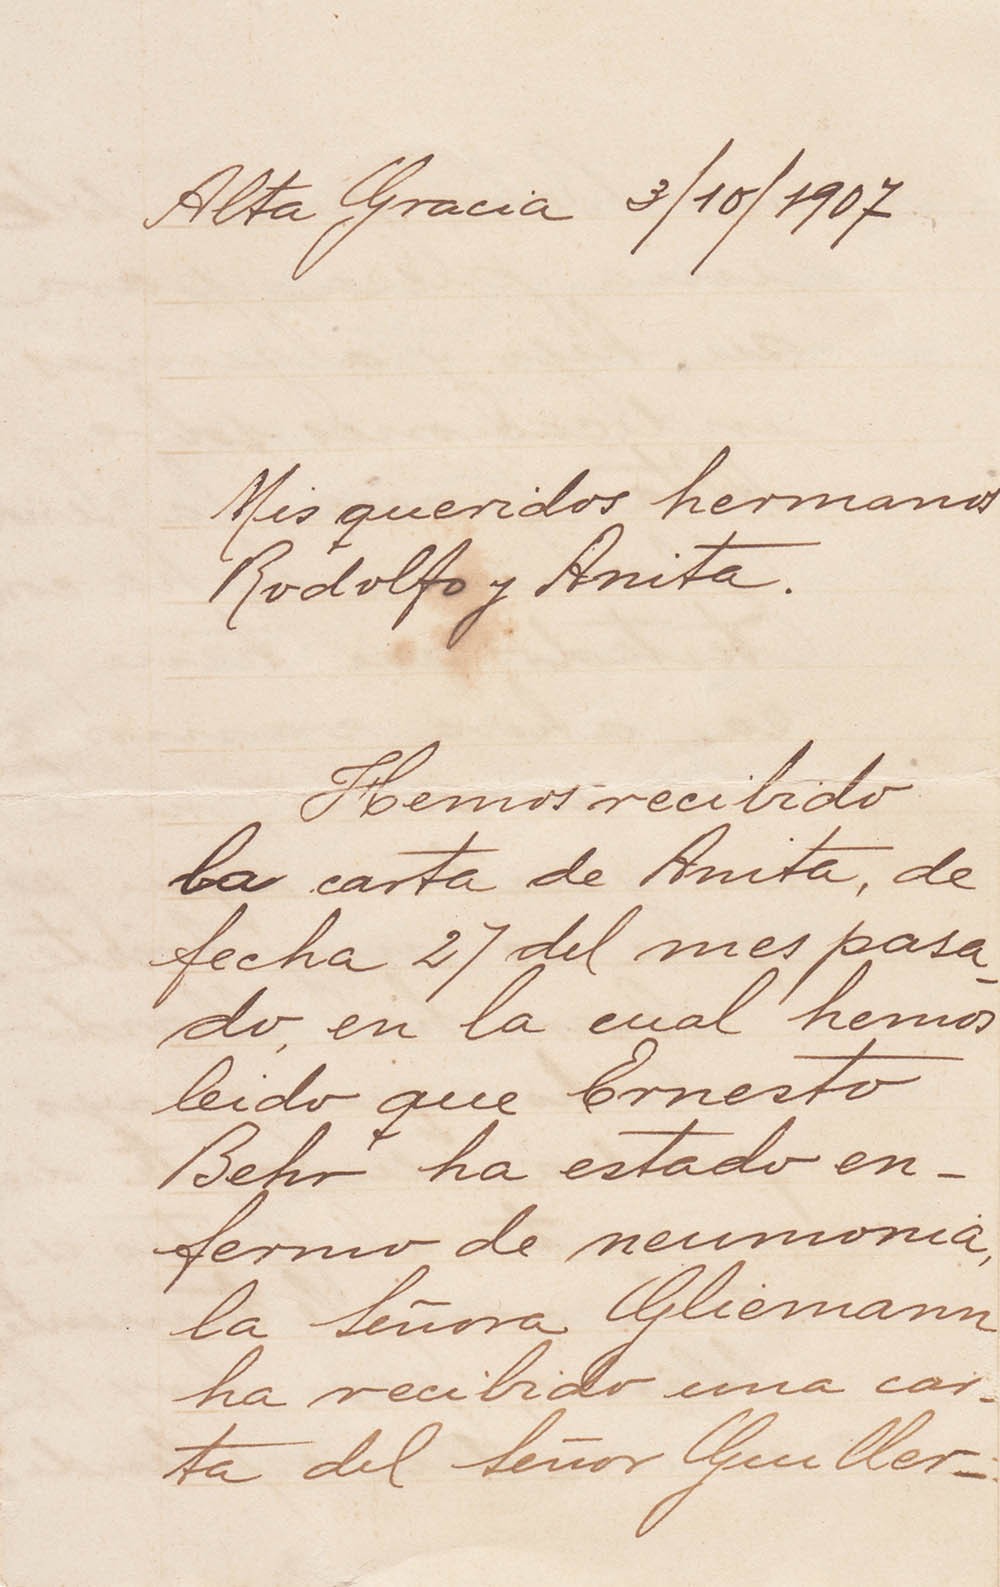 Alta Gracia 3/10/1907
Mis queridos hermanos
Rodolfo y Anita.
Hemos recibido
la carta de Anita, de
fecha 27 del mes pasa-
do, en la cual hemos
leido que Ernesto
Behr ha estado en-
fermo de neumonia,
la Señora Gliemann
ha recibido una car-
ta del Señor Guiller-